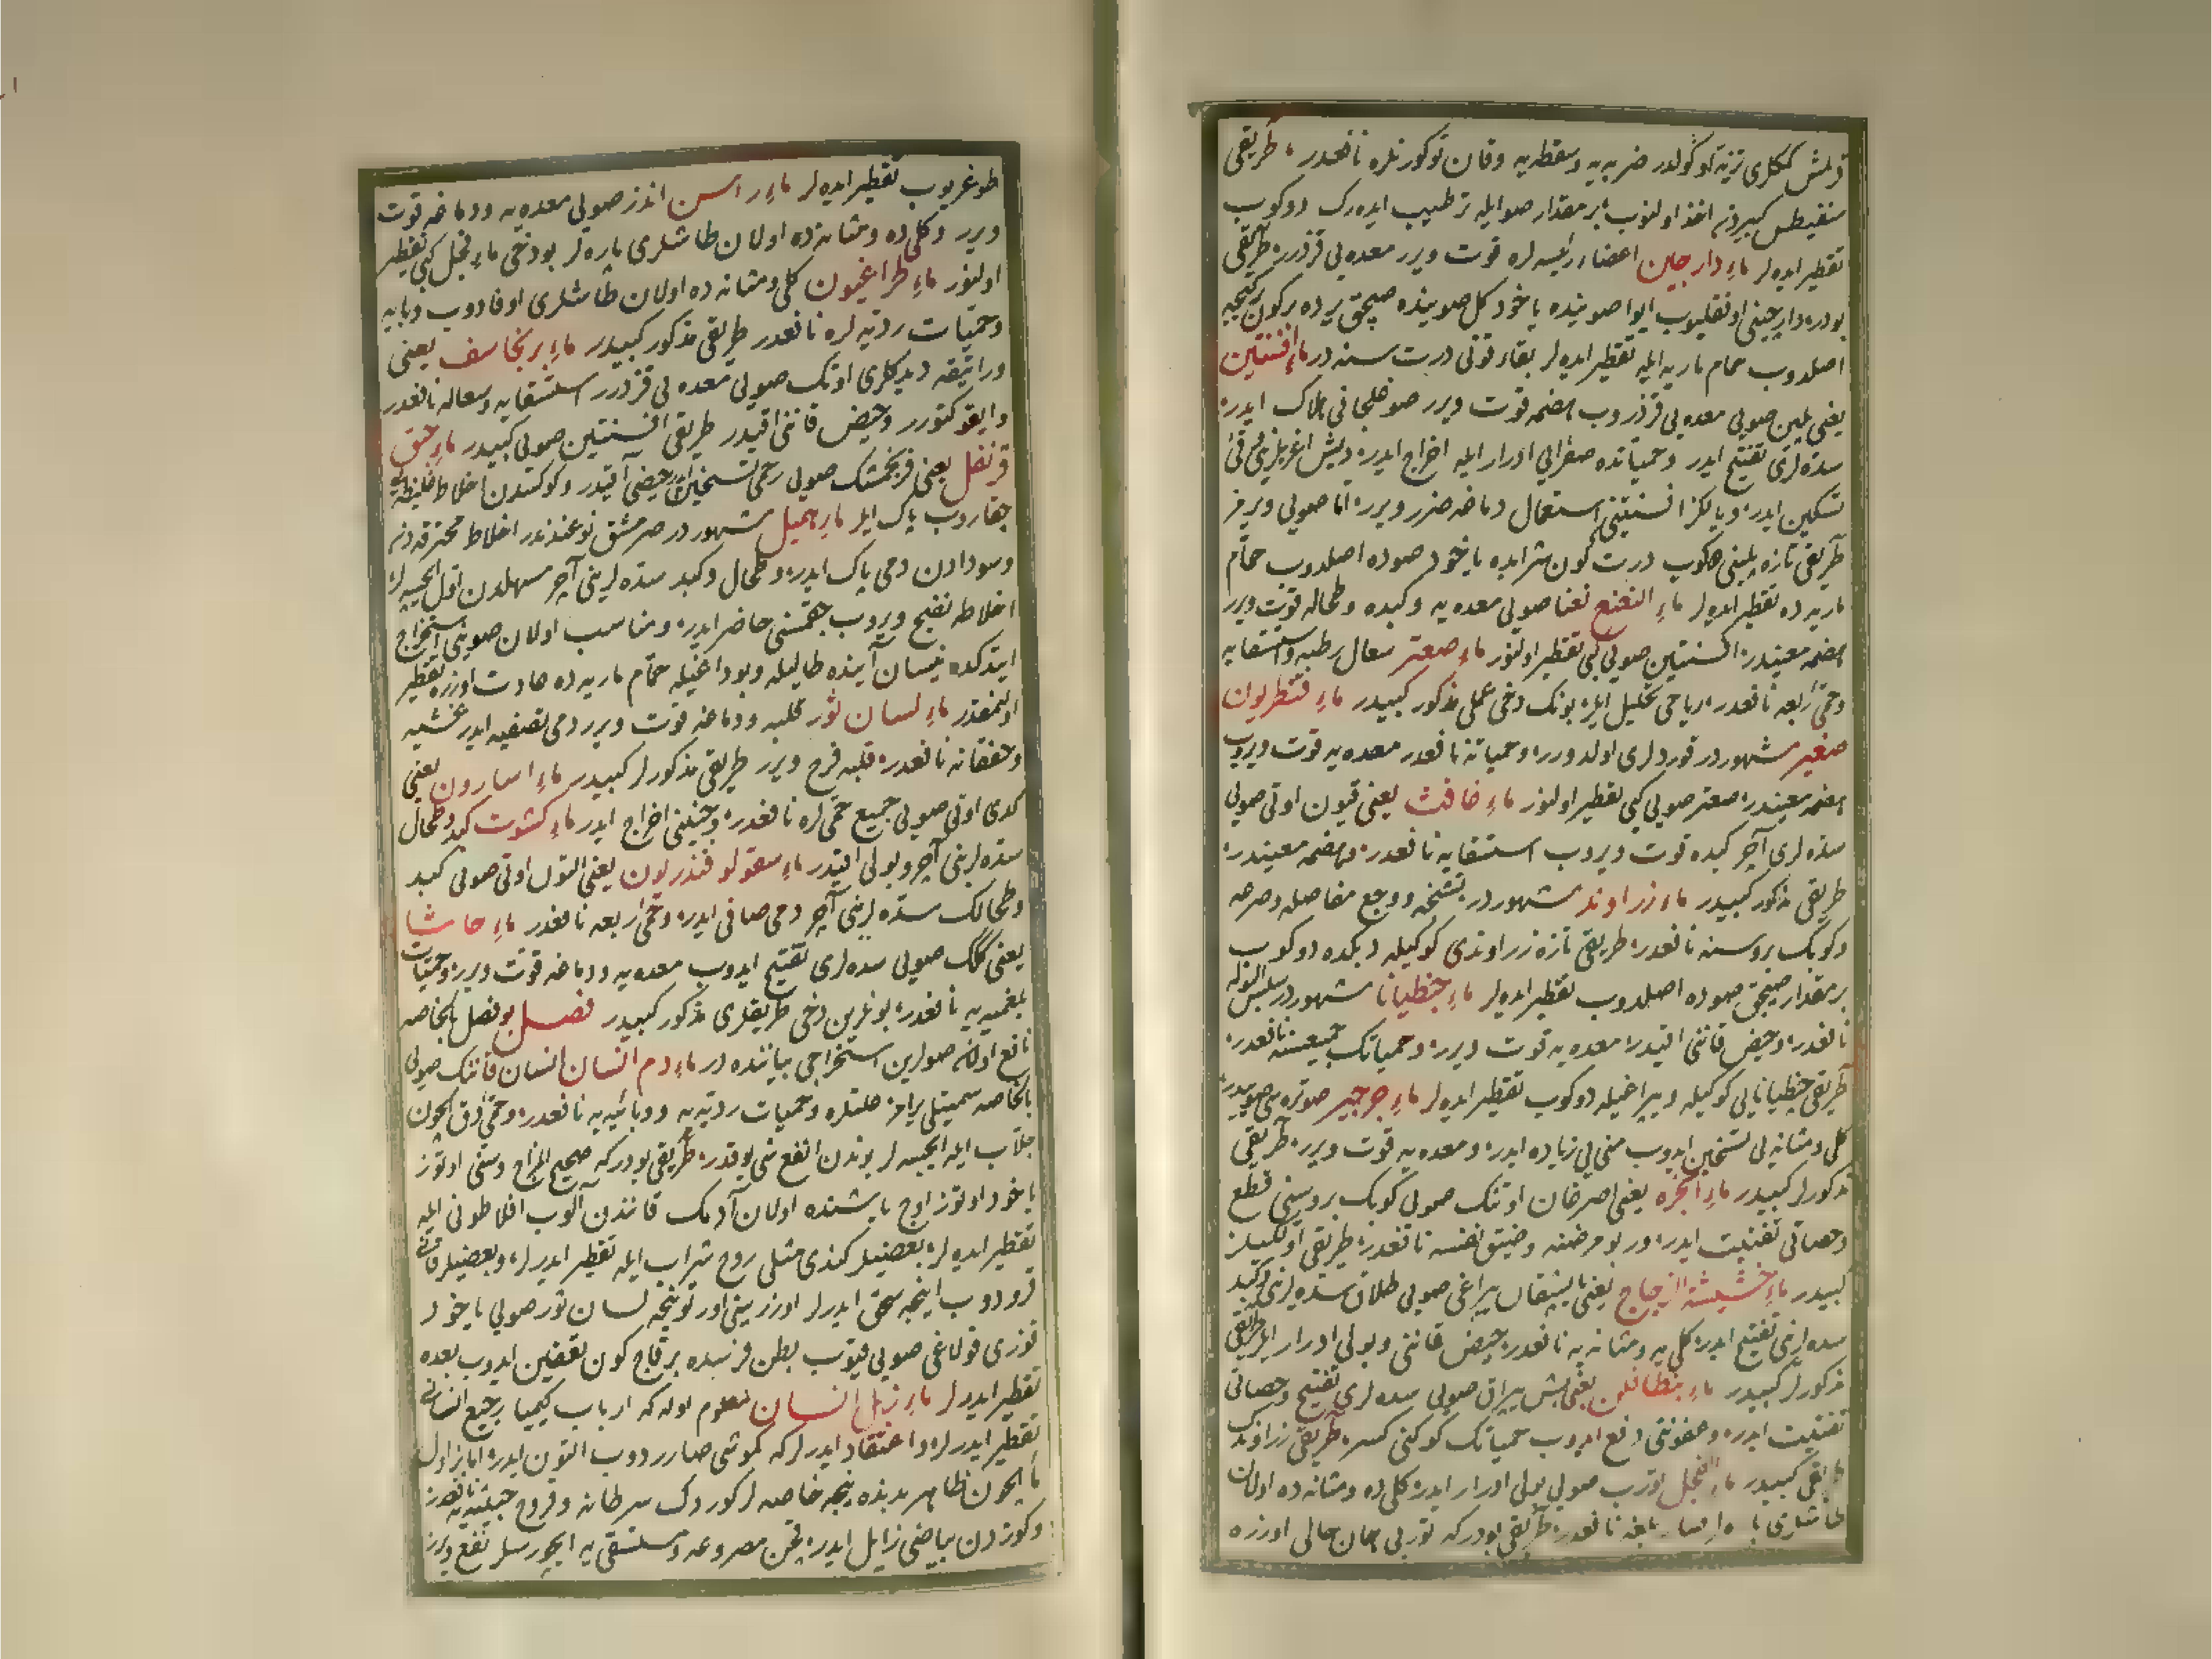 قرلمش كمكلری تیز اوكولدر ضربه یه وسقطه یه وقان توكورنلره نافعدر طریقی
سنفیطس كبیردن اخذ اولنوب بر مقدار صو ایله ترطیب ایدەرك دوكوب
تقطیر ایده لر ماء دارچین اعضاء رئیسه لره قوت ویرر معده یی قزدرر طریقی
بودر دارچینی اوفقلیوب ایوا صوینده یاخود كل صوینده صیجق یرده بر كون بر كیجه
اصلدوب حمام ماریه ایله تقطیر ایده لر بقاء قوتی درت سنه در ماء افسنتین
یعنی پلین صویی معده یی قزدروب هضمه قوت ویرر صوغلجانی هلاك ایدر
سده لری تفتیح ایدر وحمیاتده صفرایی ادرار ایله اخراج ایدر ودیش اغریلرینی
تسكین ایدر ویالكز افسنتینی استعمال دماغه ضرر ویرر اما صویی ویرمز
طریقی تازه پلینی دوكوب درت كون شرابده یاخود صوده اصلدوب حمام
ماریه ده تقطیر ایده لر ماء النعنع نعنا صویی معده یه وكبده وطحاله قوت ویرر
هضمه معیندر افسنتین صویی كبی تقطیر اولنور ماء صعتر سعال رطبه واستسقایه
وحمی ربعه نافعدر ریاحی تحلیل ایلر بونك دخی عملی مذكور كبیدر ماء قنطریون
صغیر مشهوردر قوردلری اولدورر وحمیاته نافعدر معده یه قوت ویروب
هضمه معیندر صعتر صویی كبی تقطیر اولنور ماء غافث یعنی قیون اوتی صویی
سده لری آچر كبده قوت ویروب استسقایه نافعدر وهضمه معیندر
طریقی مذكور كبیدر ماء زراوند مشهوردر تشنجه ووجع مفاصله وصرعه
وكوبك بروسنه نافعدر طریقی تازه زراوندی كوكیله دیكده دوكوب
بر مقدار صیجق صوده اصلدوب تقطیر ایده لر ماء جنطیانا مشهوردر سلس البوله
نافعدر وحیض قاننی اقیدر معده یه قوت ویرر وحمیاتك جمیعسنه نافعدر
طریقی جنطیانایی كوكیله وپیراغیله دوكوب تقطیر ایده لر ماء جرجیر صوتره سی صوییدر
كلی ومثانه یی تسخین ایدوب منی یی زیاده ایدر ومعده یه قوت ویرر طریقی
مذكورلر كبیدر ماء انجره یعنی اصرغان اوتنك صویی كوبك بروسنی قطع
وحصاتی تفتیت ایدر وربو مرضنه وضیق نفسه نافعدر طریقی اولكیلر
كبیدر ماء حشیشة الزجاج یعنی یاپشقان پیراغی صویی طلاق سده لرینی وكبد
سده لرینی تفتیح ایدر كلی یه ومثانه یه نافعدر حیض قاننی وبولی ادرار ایلر طریقی
مذكورلر كبیدر ماء بنطافلن یعنی بش پیراق صویی سده لری تفتیح وحصاتی
تفتیت ایدر وعفونتی دفع ایدوب حمیاتك كوكنی كسر طریقی زراوندك
طریقی كبیدر ماء الفجل ترب صویی بولی ادرار ایدر كلی ده ومثانه ده اولان
طاشلری نافعدر طریقی بودركه تربی همان حالی اوزره
طوغریوب تقطیر ایده لر ماء راسن اندز صویی معده یه ودماغه قوت
ویرر وكلی ده ومثانه ده اولان طاشلری پاره لر بو دخی ماء فجل كبی تقطیر
اولنور ماء طراغیون كلی ومثانه ده اولان طاشلری اوفادوب وبایه
وحمیات ردیه لره نافعدر طریقی مذكور كبیدر ماء برنجاسف یعنی
وراتیقه دیدكلری اوتك صویی معده یی قزدرر استسقایه وسعاله نافعدر
وایقو كتورر وحیض قاننی اقیدر طریقی افسنتین صویی كبیدر ماء حبق
قرنفل یعنی فرنجمشك صویی رحمی تسخین ایدر حیضی اقیدر وكوكسدن اخلاط غلیظه یی
چقاروب پاك ایلر ماء مشهوردر صرمشق نوعندندر اخلاط محترقه دن
وسودادن دمی پاك ایدر وطحال وكبد سده لرینی آچر مسهلدن اول ایچیلر
اخلاطه نضج ویروب چقمسنی حاضر ایدر ومناسب اولان صوینی استخراج
ایتدكده نیسان آینده طالیله وبوداغیله حمام ماریه ده عادت اوزره تقطیر
اولنمقدر ماء لسان ثور قلبه ودماغه قوت ویرر دمی تصفیه ایدر غشیه
وخفقانه نافعدر قلبه فرح ویرر طریقی مذكورلر كبیدر ماء اسارون یعنی
كدی اوتی صویی جمیع حمی لره نافعدر وجنینی اخراج ایدر ماء كشوت كبد وطحال
سده لرینی آچر وبولی اقیدر ماء سقولوفندریون یعنی التون اوتی صویی كبد
وطحالك سده لرینی آچر دمی صافی ایدر وحمی ربعه نافعدر ماء حاشا
یعنی ككك صویی سده لری تفتیح ایدوب معده یه ودماغه قوت ویرر وحمیات
بلغمیه یه نافعدر بونلرین دخی طریقلری مذكور كبیدر فصل بو فصل بالخاصه
نافع اولان صولرین استخراجی بیاننده در ماء دم انسان انسان قاننك صویی
بالخاصه سمیتلی یرامز علتلره وحمیات ردیه یه ووبائیه یه نافعدر وحمی دق ایچون
جلاب ایله ایچسه لر بوندن انفع شی یوقدر طریقی بودركه صحیح المزاج وسنی اوتوز
یاخود اوتوز اوچ یاشنده اولان آدمك قانندن آلوب افلاطونی ایله
تقطیر ایده لر بعضیلر كندی مثلی روح شراب ایله تقطیر ایدرلر وبعضیلر قانی
قرودوب اینجه سحق ایدرلر اوزرینی اورتونجه لسان ثور صویی یاخود
قوزی قولاغی صویی قیوب بطن فرسده بر قاچ كون تعفین ایدوب بعده
تقطیر ایدرلر ماء زبل انسان معلوم اوله كه ارباب كیمیا رجیع انسانی
تقطیر ایدرلر واعتقاد ایدرلركه كوموشی صارردوب التون ایدر اما بز اول
ایچون ظاهر بدنده نیجه خاصه لر كوردك سرطانه وقروح خبیثه یه نافعدر
وكوزدن بیاضی زایل ایدر حقن مصروعه ومستسقی یه ایچورسلر نفع ویرر